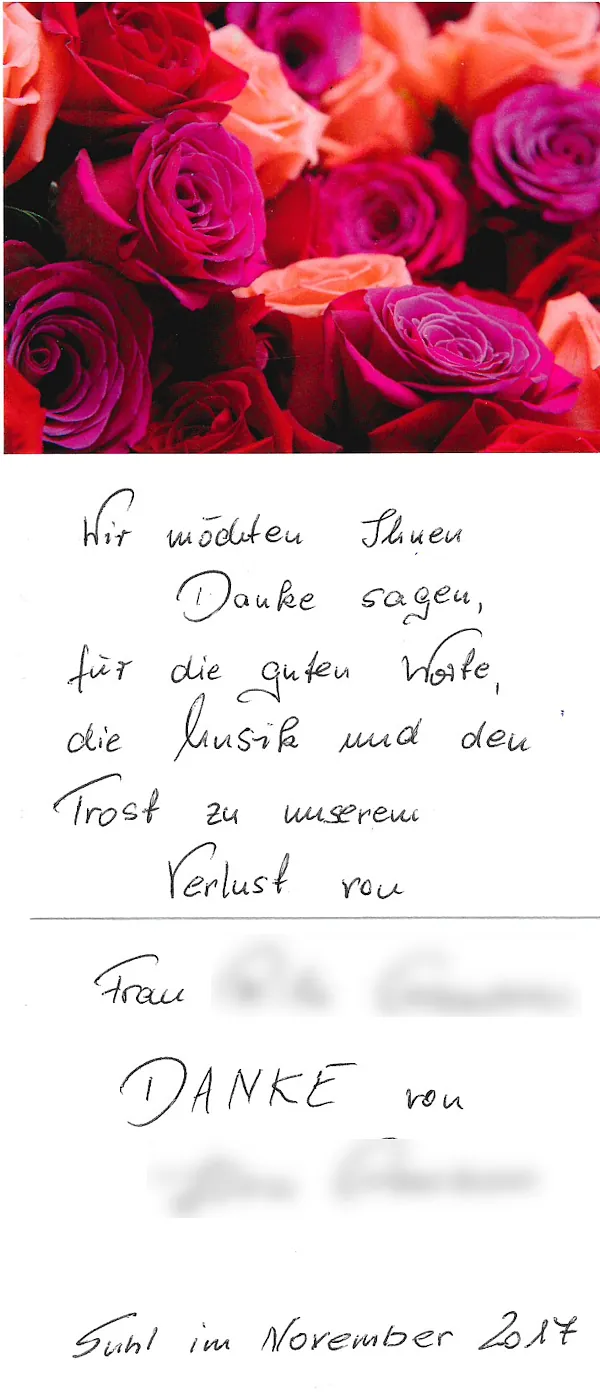 Wir möchten Ihnen
Danke sagen,
für die guten Worte,
die Musik und den
Trost zu unserem
Verlust von
Frau
DANKE von
Suhl im November 2017